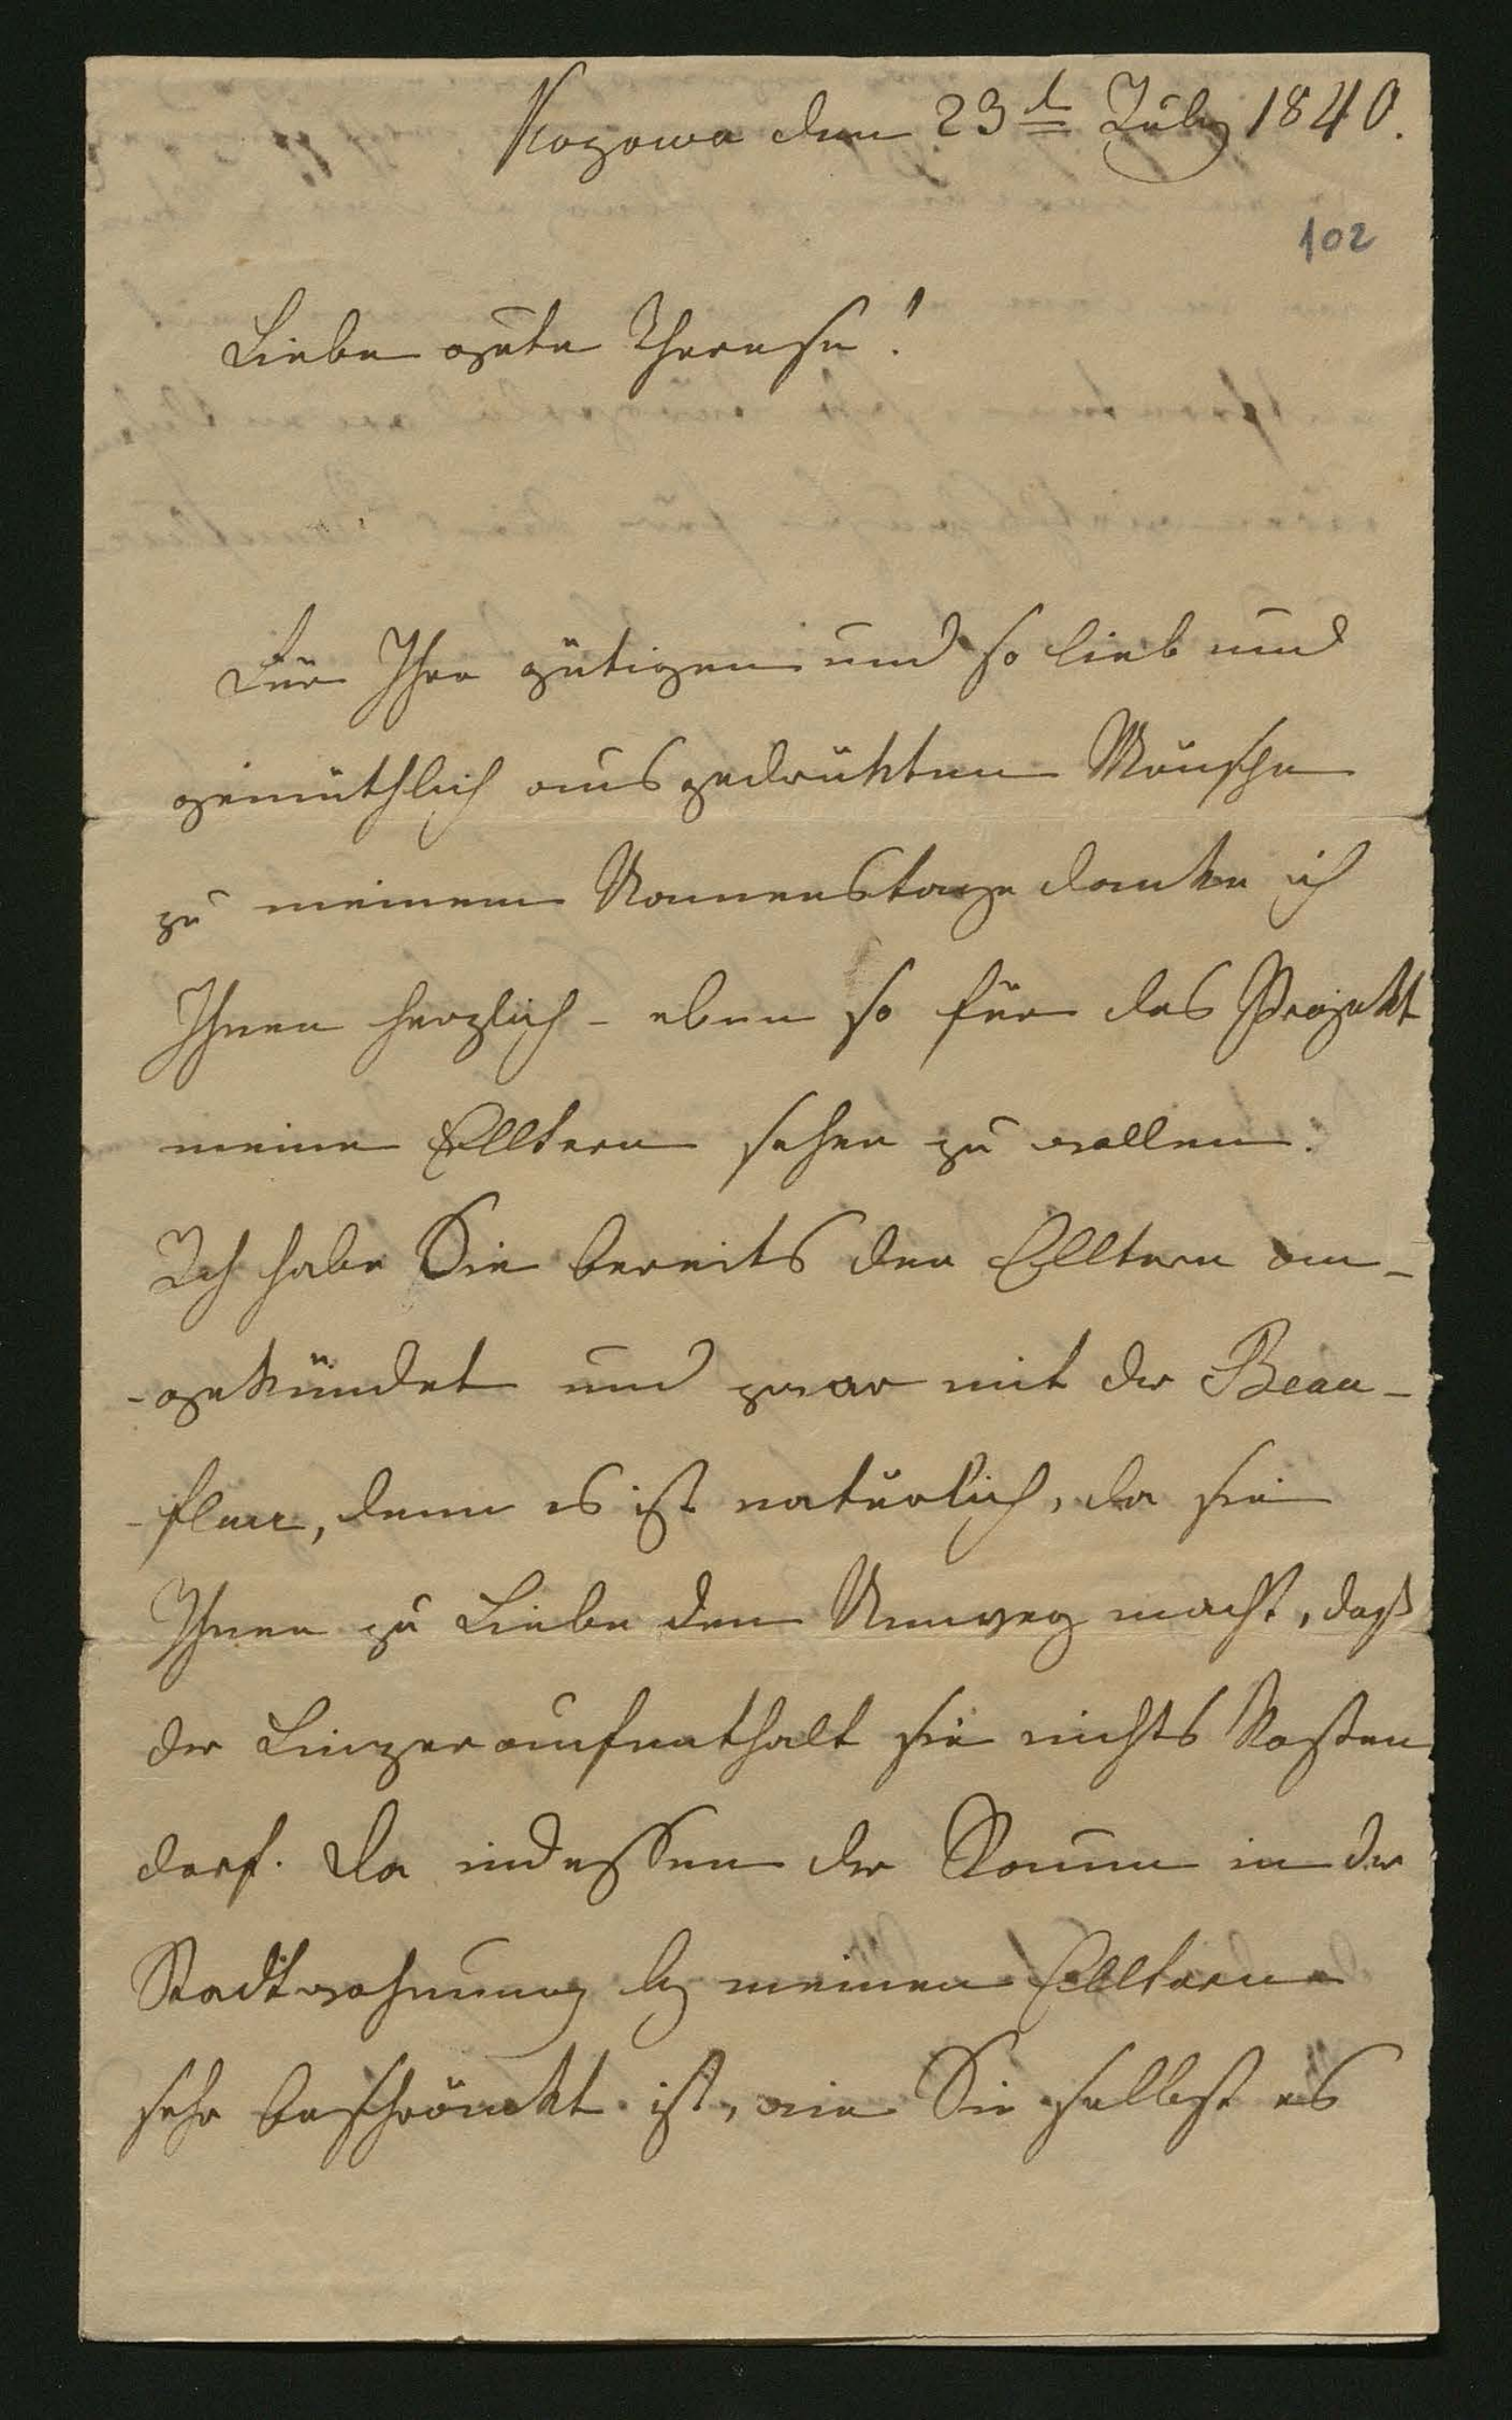 Kozowa den 23t July 1840.
102
Liebe gute Therese!
Für Ihre gütigen und so lieb und
gemüthlich ausgedrükten Wünsche
zu meinem Namenstage danke ich
Ihnen herzlich - eben so für das Projekt
meine Elltern sehen zu wollen.
Ich habe Sie bereits den Elltern an-
-gekündet und zwar mit der Beau-
-fleur, denn es ist natürlich, da sie
Ihnen zu Liebe den Umweg macht, daß
der Linzeraufenthalt sie nichts kosten
darf. Da indessen der Raum in der
Stadtwohnung bey meinen Elltern
sehr beschränkt ist, wie Sie selbst es